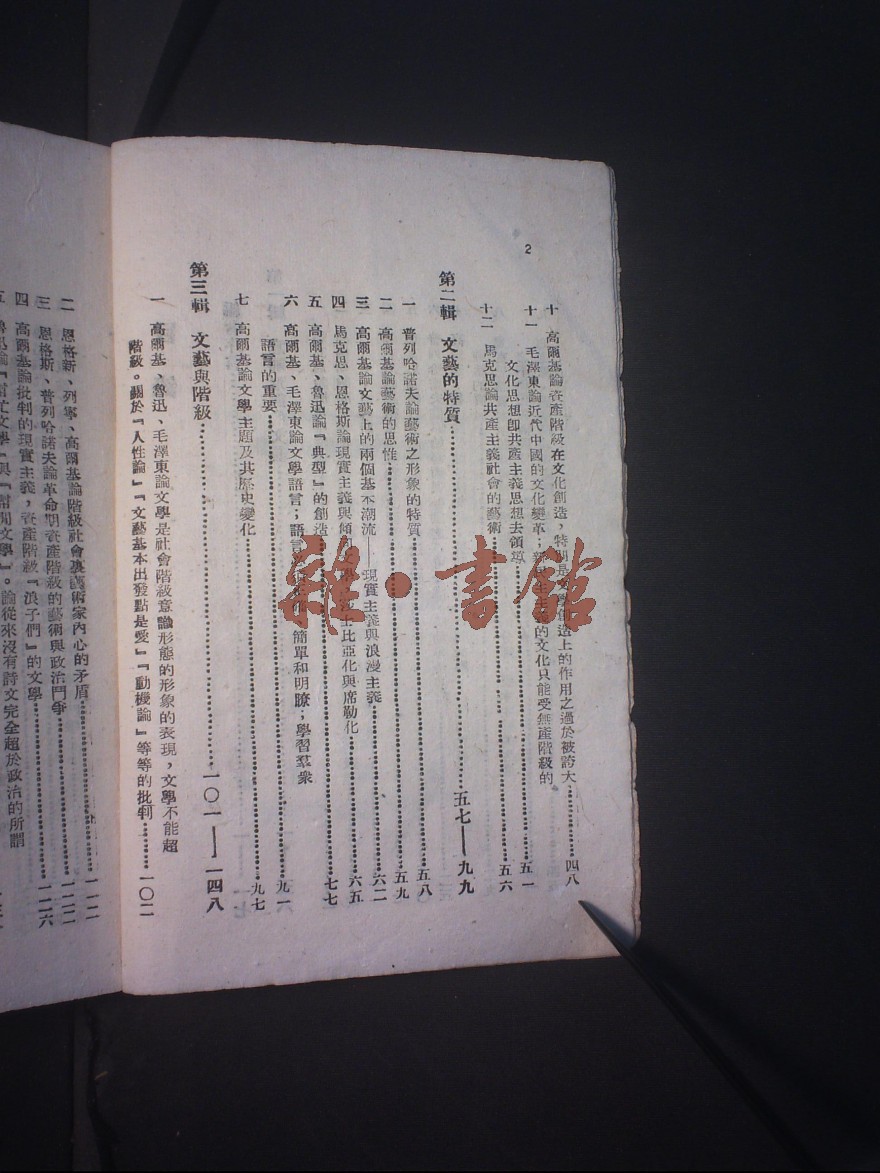 2
十　高爾基論資產階級在文化創造，特別是文學創造上的作用之過於被誇大……四八
十一　毛澤東論近代中國的文化變革；新民主主義的文化只能受無產階級的
文化思想卽共產主義思想去領導……五一
十二　馬克思論共產主義社會的藝術……五六
第二輯　文藝的特質……五七——九九
一　普列哈諾夫論藝術之形象的特質……五八
二　高爾基論藝術的思惟……五九
三　高爾基論文藝上的兩個基本潮流——現實主義與浪漫主義……六二
四　馬克思、恩格斯論現實主義與傾向士比亞化與席勒化……六五
五　高爾基、魯迅論『典型』的創造……七七
六　高爾基、毛澤東論文學語言；語言簡單和明瞭；學習羣衆
語言的重要……九一
七　高爾基論文學主題及其歷史變化……九七
第三輯　文藝與階級……一〇一——一四八
一　高爾基、魯迅、毛澤東論文學是社會階級意識形態的形象的表現，文學不能超
階級。關於『人性論』『文藝基本出發點是愛』『動機論』等等的批判……一〇二
二　恩格斯、列寧、高爾基論階級社會與藝術家內心的矛盾……一一一
三　恩格斯、普列哈諾夫論革命期資產階級的藝術與政治鬥爭……一二二
四　高爾基論批判的現實主義，資產階級『浪子們』的文學……一二六
五　魯迅論『幫忙文學』與『幫閒文學』。論從來沒有詩文完全超於政治的所謂
雜·書館